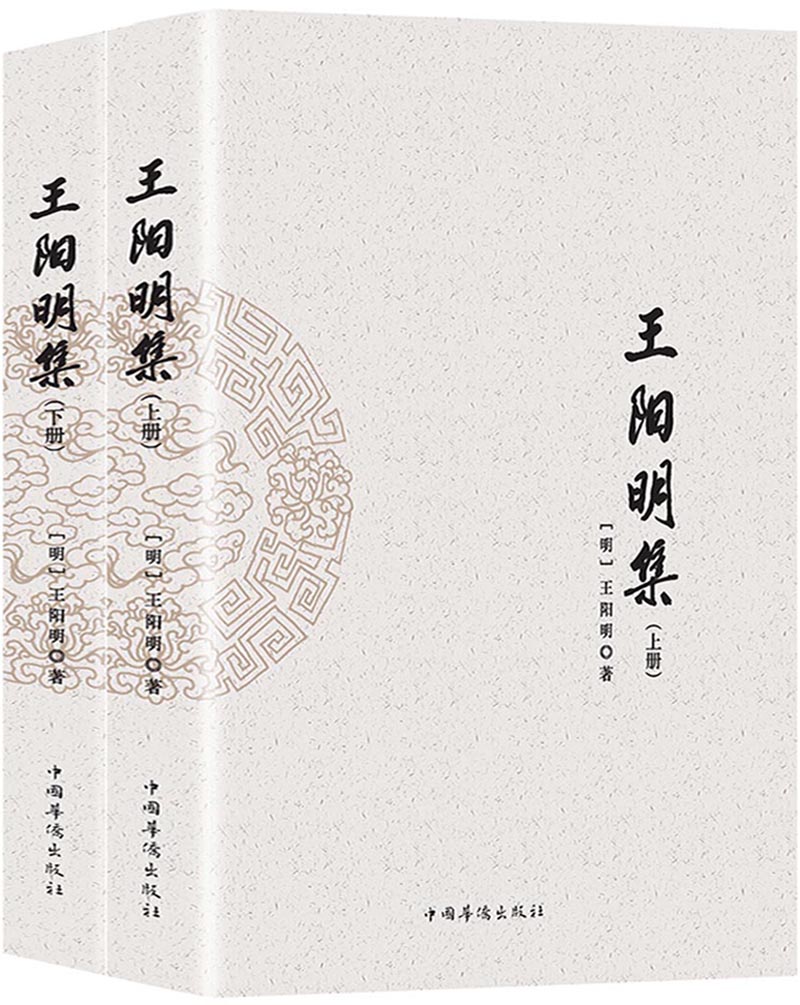 王阳明集
(上册)
[明]王阳明○著
中國華僑出版社
王阳明集
(上册)
[明]王阳明○著
中國華僑出版社
王阳明集
(下册)
[明]王阳明○著
中國華僑出版社